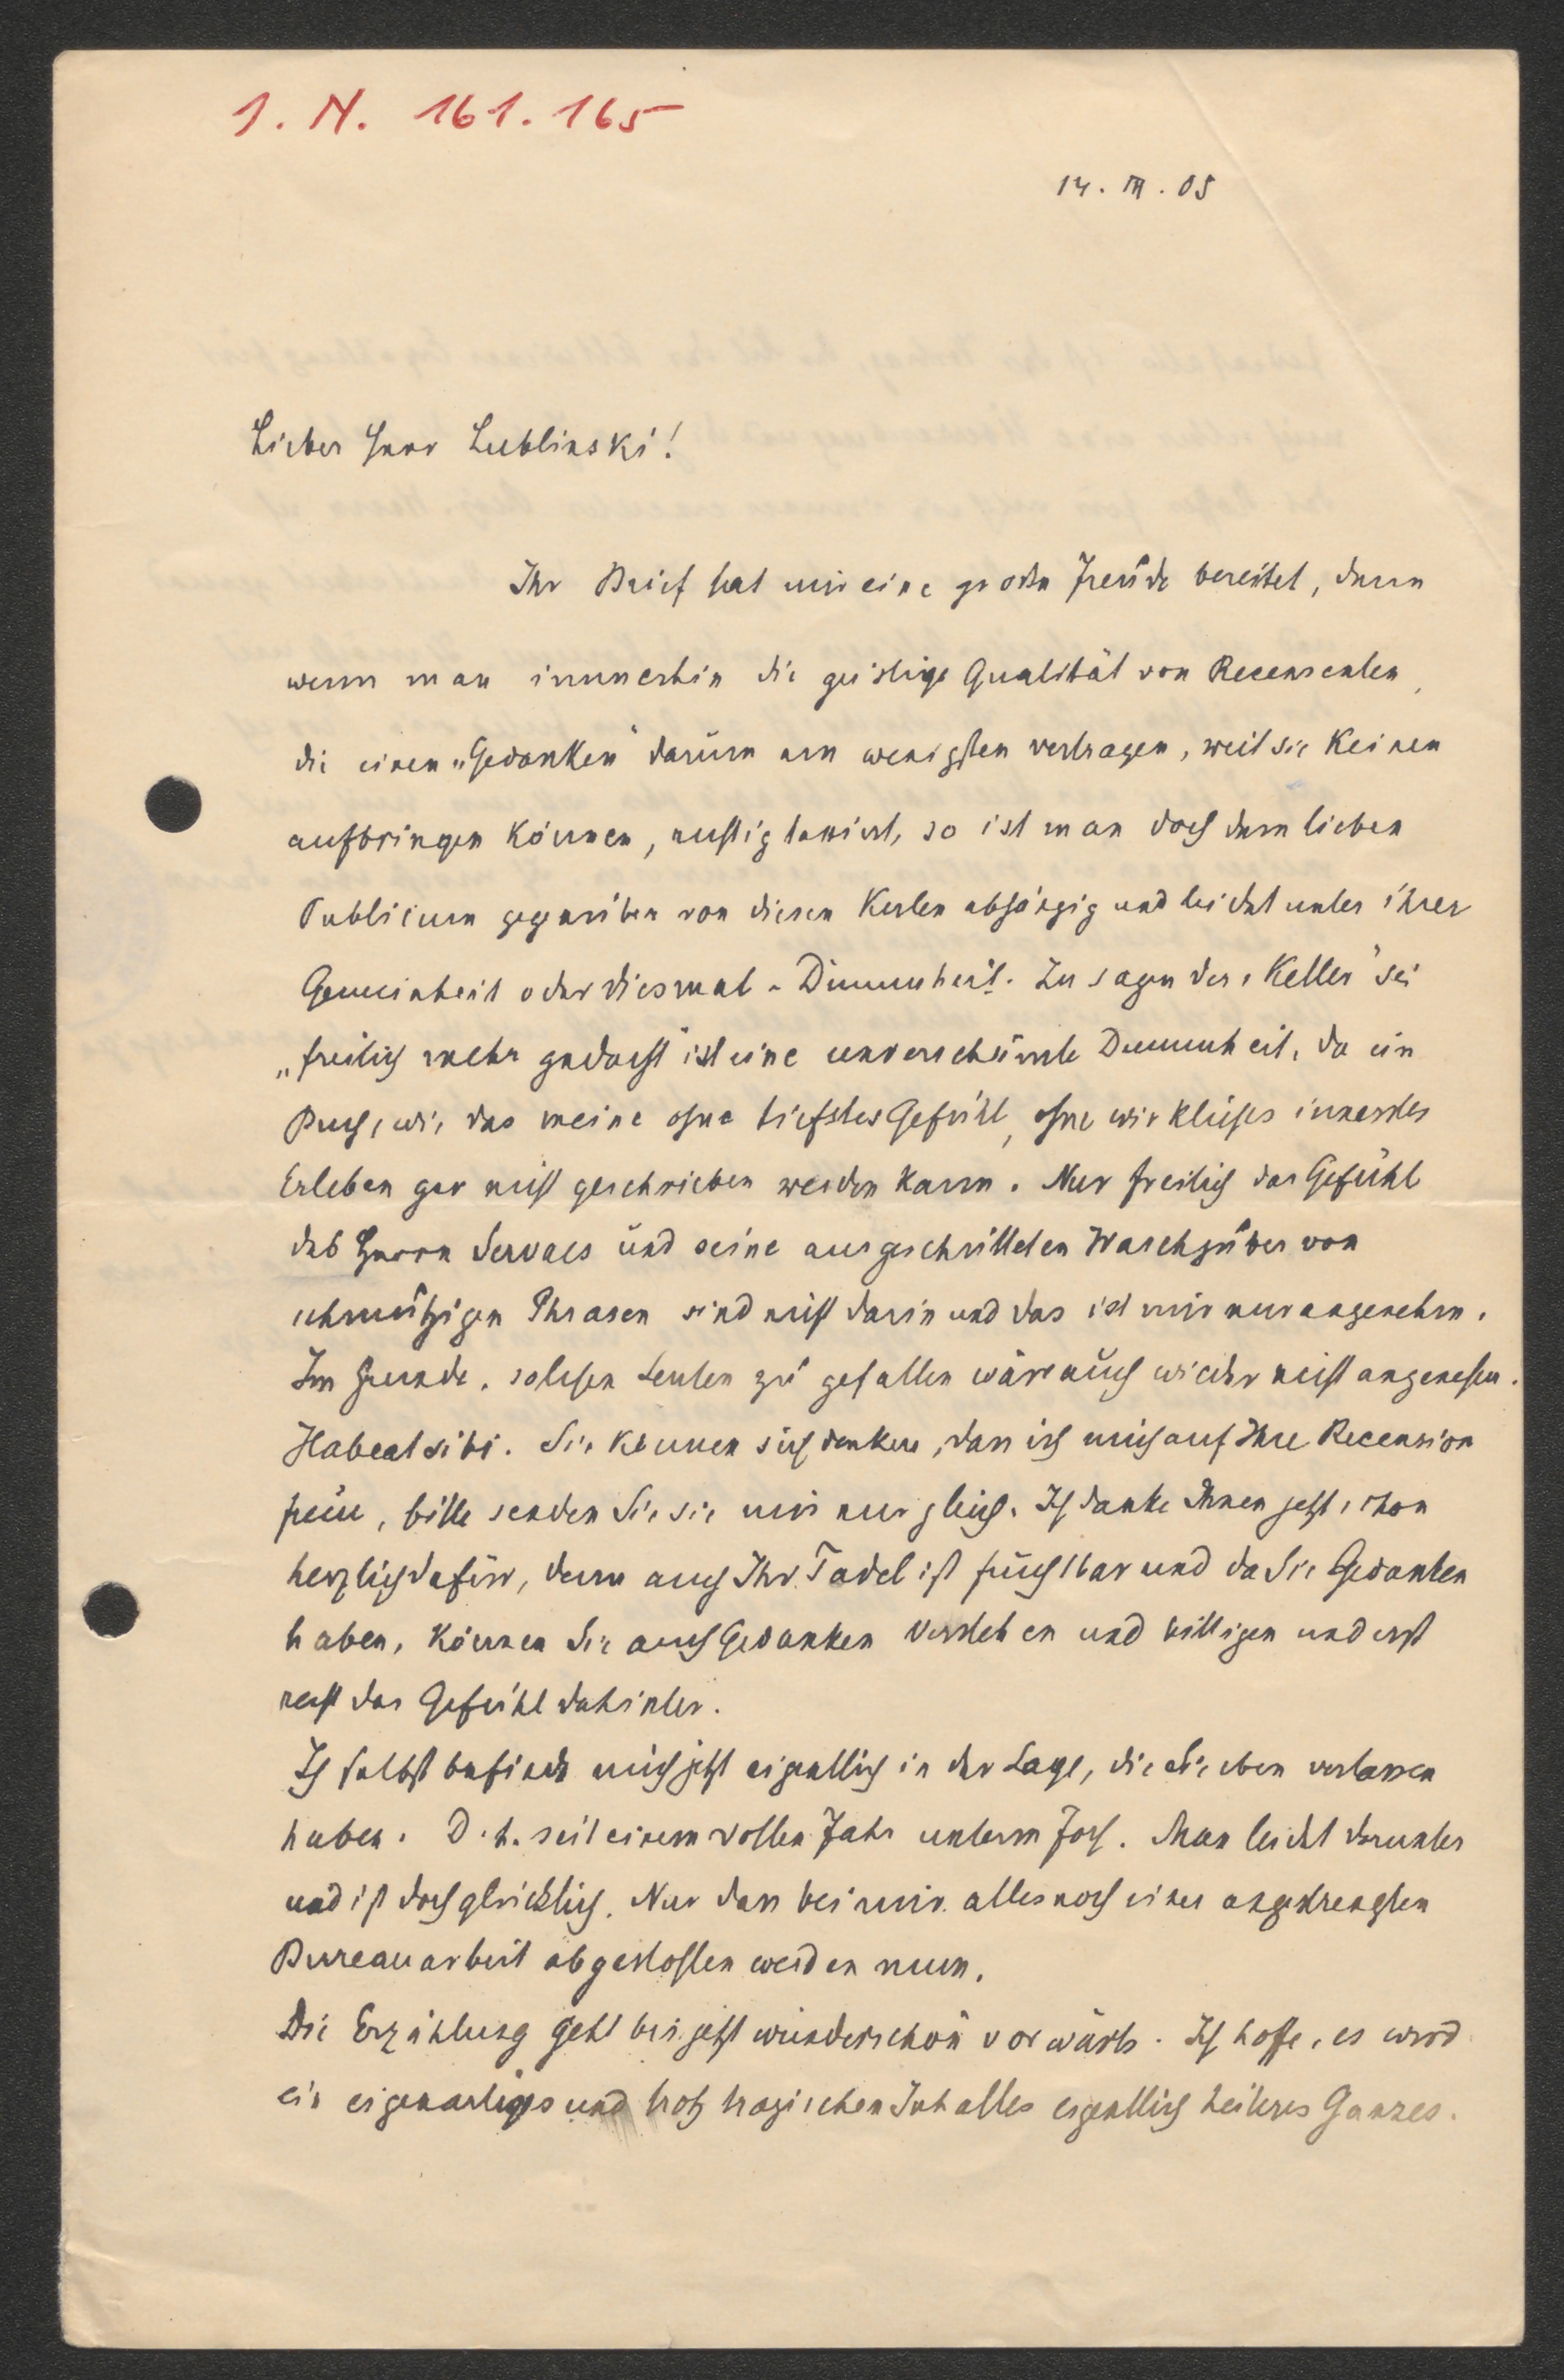 I. N. 161.165
14. III. 05
Lieber Herr Lublinski!
Ihr Brief hat mir eine große Freude bereitet, denn
wenn man immerhin die geistige Qualität von Recensenten,
die einen „Gedanken“ darum am wenigsten vertragen, weil sie keinen
aufbringen können, richtig taxiert, so ist man doch dem lieben
Publicum gegenüber von diesen Kerlen abhängig und leidet unter ihrer
Gemeinheit oder diesmal - Dummheit. Zu sagen der „Keller“ sei
„freilich mehr gedacht“ ist eine unverschämte Dummheit, da ein
Buch, wie das meine ohne tiefstes Gefühl, ohne wirkliches innerstes
Erleben gar nicht geschrieben werden kann. Nur freilich das Gefühl
des Herrn Servaes und seine ausgeschütteten Waschzuber von
schmutzigen Phrasen sind nicht darin und das ist mir nur angenehm.
Im Grunde, solchen Leuten zu gefallen wäre auch wieder nicht angenehm.
Habeat sibi. Sie können sich denken, dass ich mich auf Ihre Recension
freue, bitte senden Sie sie mir nur gleich. Ich danke Ihnen jetzt schon
herzlich dafür, denn auch Ihr Tadel ist fruchtbar und da Sie Gedanken
haben, können Sie auch Gedanken verstehen und billigen und erst
recht das Gefühl dahinter.
Ich selbst befinde mich jetzt eigentlich in der Lage, die Sie eben verlassen
haben. D. h. seit einem vollen Jahr unterm Joch. Man leidet darunter
und ist doch glücklich. Nur dass bei mir alles noch einer angestrengten
Bureauarbeit abgestohlen werden muss.
Die Erzählung geht bis jetzt wunderschön vorwärts. Ich hoffe, es wird
ein eigenartiges und trotz tragischen Inhaltes eigentlich heiteres Ganzes.